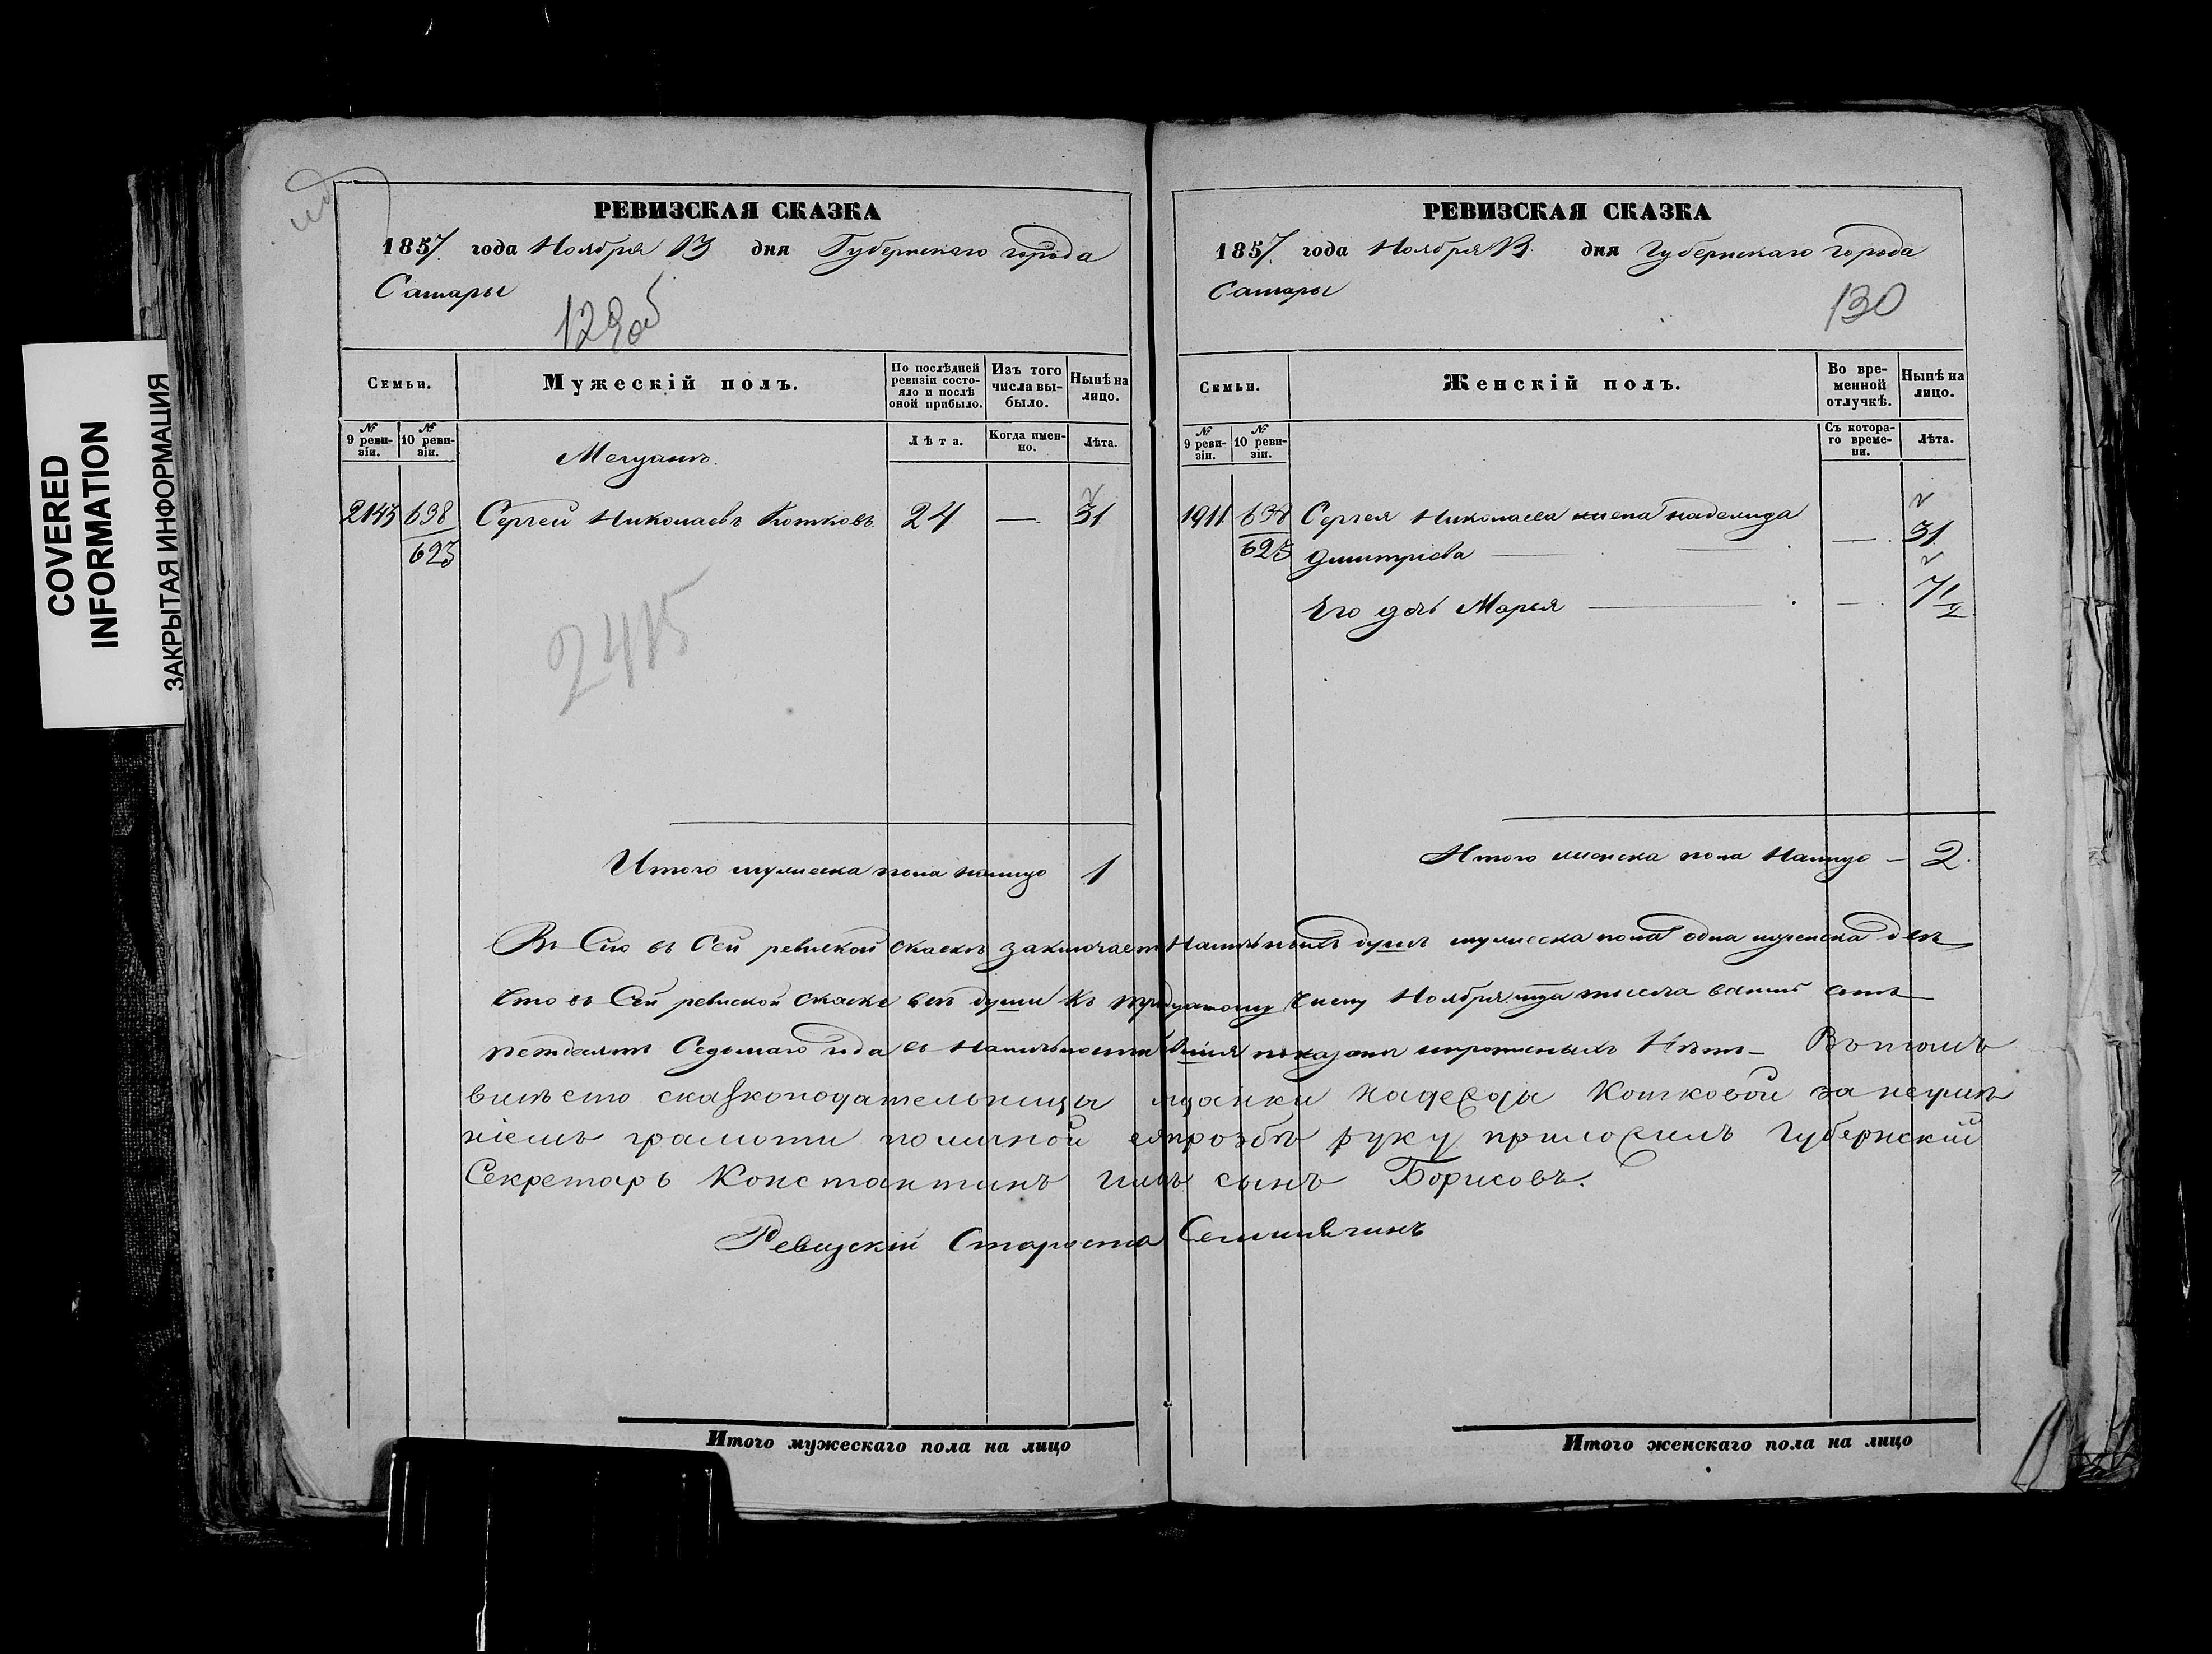 COVERED
INFORMATION
ЗАКРЫТАЯ ИНФОРМАЦИЯ
РЕВИЗСКАЯ СКАЗКА
1857 года Ноября 13 дня Губернскаго города
Самары
129об
Семьи.
Мужескій полъ.
По послѣдней ревизіи состояло и послѣ оной прибыло.
Изъ того числа выбыло.
Нынѣ на лицо.
№ 9 ревизіи.
№ 10 ревизіи.
Лѣта.
Когда именно.
Лѣта.
Мещанъ.
2143 638/623 Сергей Николаевъ Котковъ 24 — 31
2415
Итого мужеска пола налицо 1
Итого мужескаго пола на лицо
РЕВИЗСКАЯ СКАЗКА
1857 года Ноября 13 дня Губернскаго города
Самары
130
Семьи.
Женскій полъ.
Во временной отлучкѣ.
Нынѣ на лицо.
№ 9 ревизіи.
№ 10 ревизіи.
Съ котораго времени.
Лѣта.
1911 638/623 Сергея Николаева жена Надежда
Дмитріева — 31
Его дочь Марья — 7 1/2
Итого женска пола Налицо — 2
Итого женскаго пола на лицо
въ Сей ревиской скаскѣ заключает Наличныхъ душъ мужеска пола одна женска две
Что въ Сей ревиской скаске все души къ тридцатому числу Ноября тысяча
Седьмаго года въ Наличности показаны Нетъ — Въ томъ
вместо сказкоподательницы мщанки Надежда Котковой за неуме
ніемъ грамоти по личной ея прозбѣ руку приложилъ Губернский
Секретарь Константинъ сынъ Борисовъ.
Ревизскій Староста